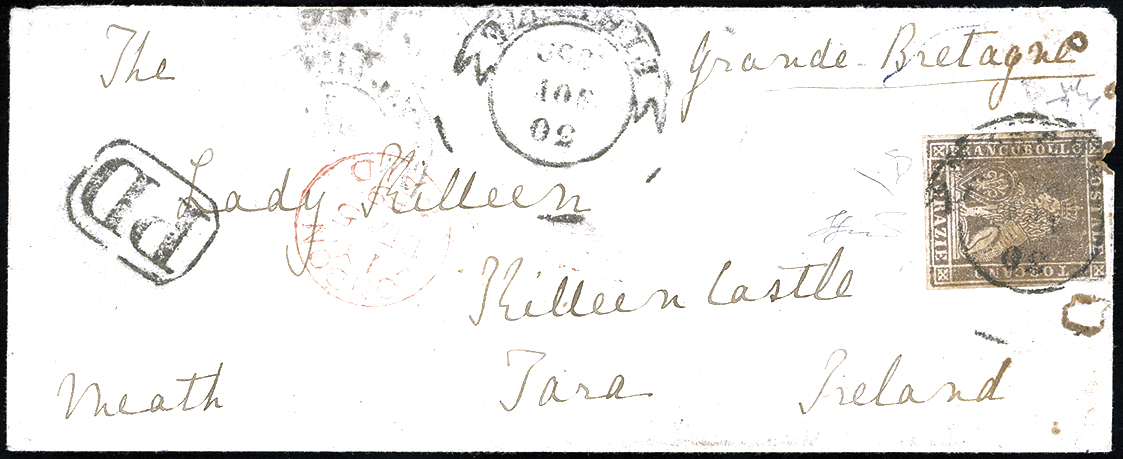 The
Grande-Bretagne
Lady Killeen
Killeen Castle
Meath Tara Ireland
PD
FRANCOBOLLO
POSTALE
TOSCANO
CRAZIE
LONDON
PAID